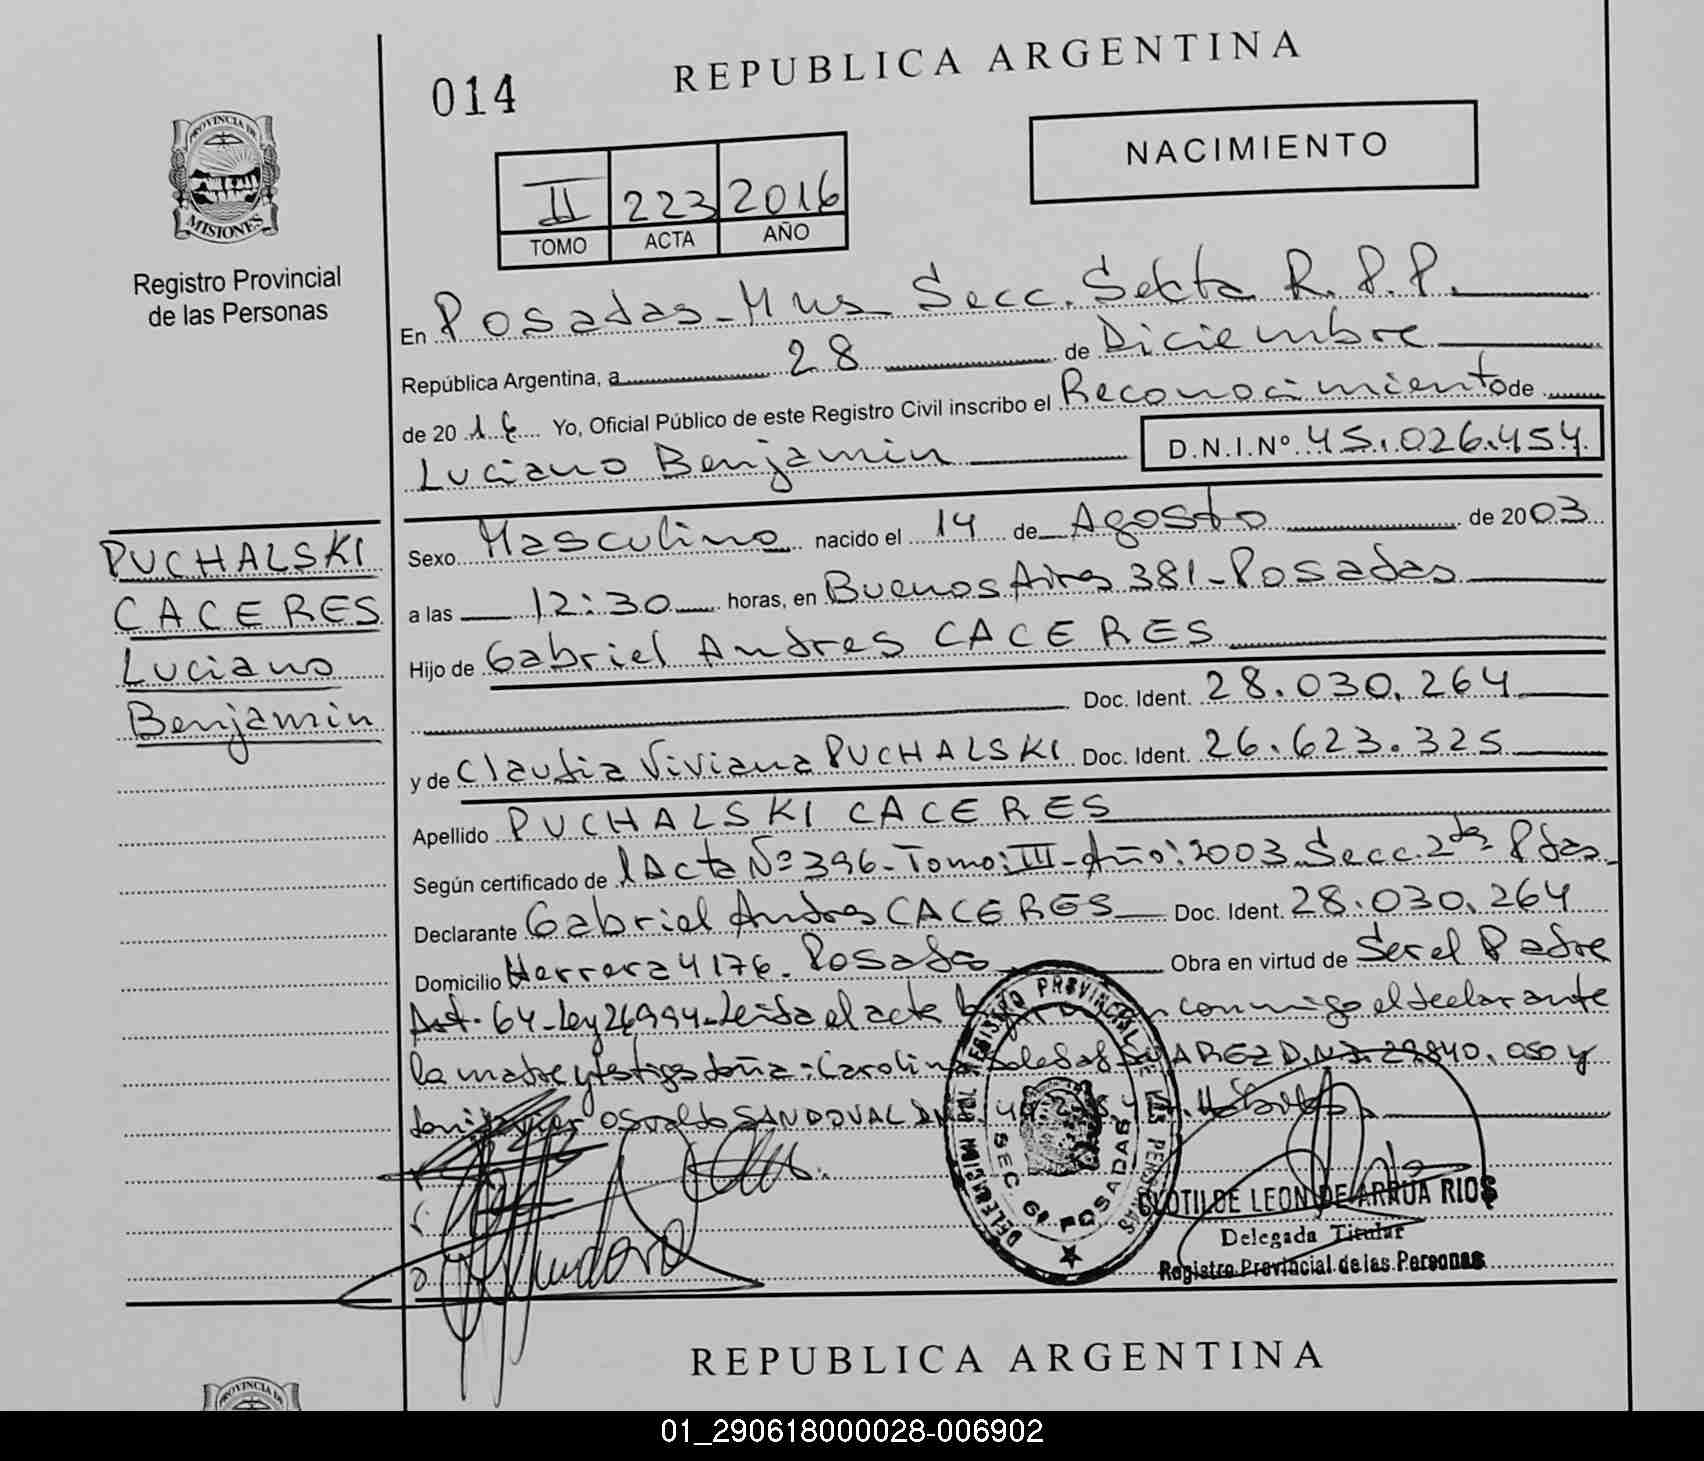 014
REPUBLICA ARGENTINA
NACIMIENTO
PROVINCIA DE
MISIONES
Registro Provincial
de las Personas
II 223 2016
TOMO ACTA AÑO
En Posadas - Mns Secc. Sexta R.P.P.
República Argentina, a 28 de Diciembre
de 2016 Yo, Oficial Público de este Registro Civil inscribo el Reconocimiento de
Luciano Benjamin D.N.I.Nº 45.026.454
PUCHALSKI
CACERES
Luciano
Benjamin
Sexo Masculino nacido el 14 de Agosto de 2003
a las 12:30 horas, en Buenos Aires 381 - Posadas
Hijo de Gabriel Andres CACERES
Doc. Ident. 28.030.264
y de Claudia Viviana PUCHALSKI Doc. Ident. 26.623.325
Apellido PUCHALSKI CACERES
Según certificado de l Acta Nº 396 - Tomo: III - Año: 2003 Secc. 2da Pdas.
Declarante Gabriel Andres CACERES Doc. Ident. 28.030.264
Domicilio Herrera 4176 - Posadas Obra en virtud de Ser el Padre
Art. 64 - Ley 26994 - Leida el acta conmigo el declarante
la madre y testigos doña: Carolina Soledad SUAREZ D.N.I. 29.840.050 y
Osvaldo SANDOVAL
DELEGACION DEL REGISTRO PROVINCIAL DE LAS PERSONAS
SEC. 6ª POSADAS
CLOTILDE LEON DE ARRUA RIOS
Delegada Titular
Registro Provincial de las Personas
REPUBLICA ARGENTINA
PROVINCIA DE
01_290618000028-006902